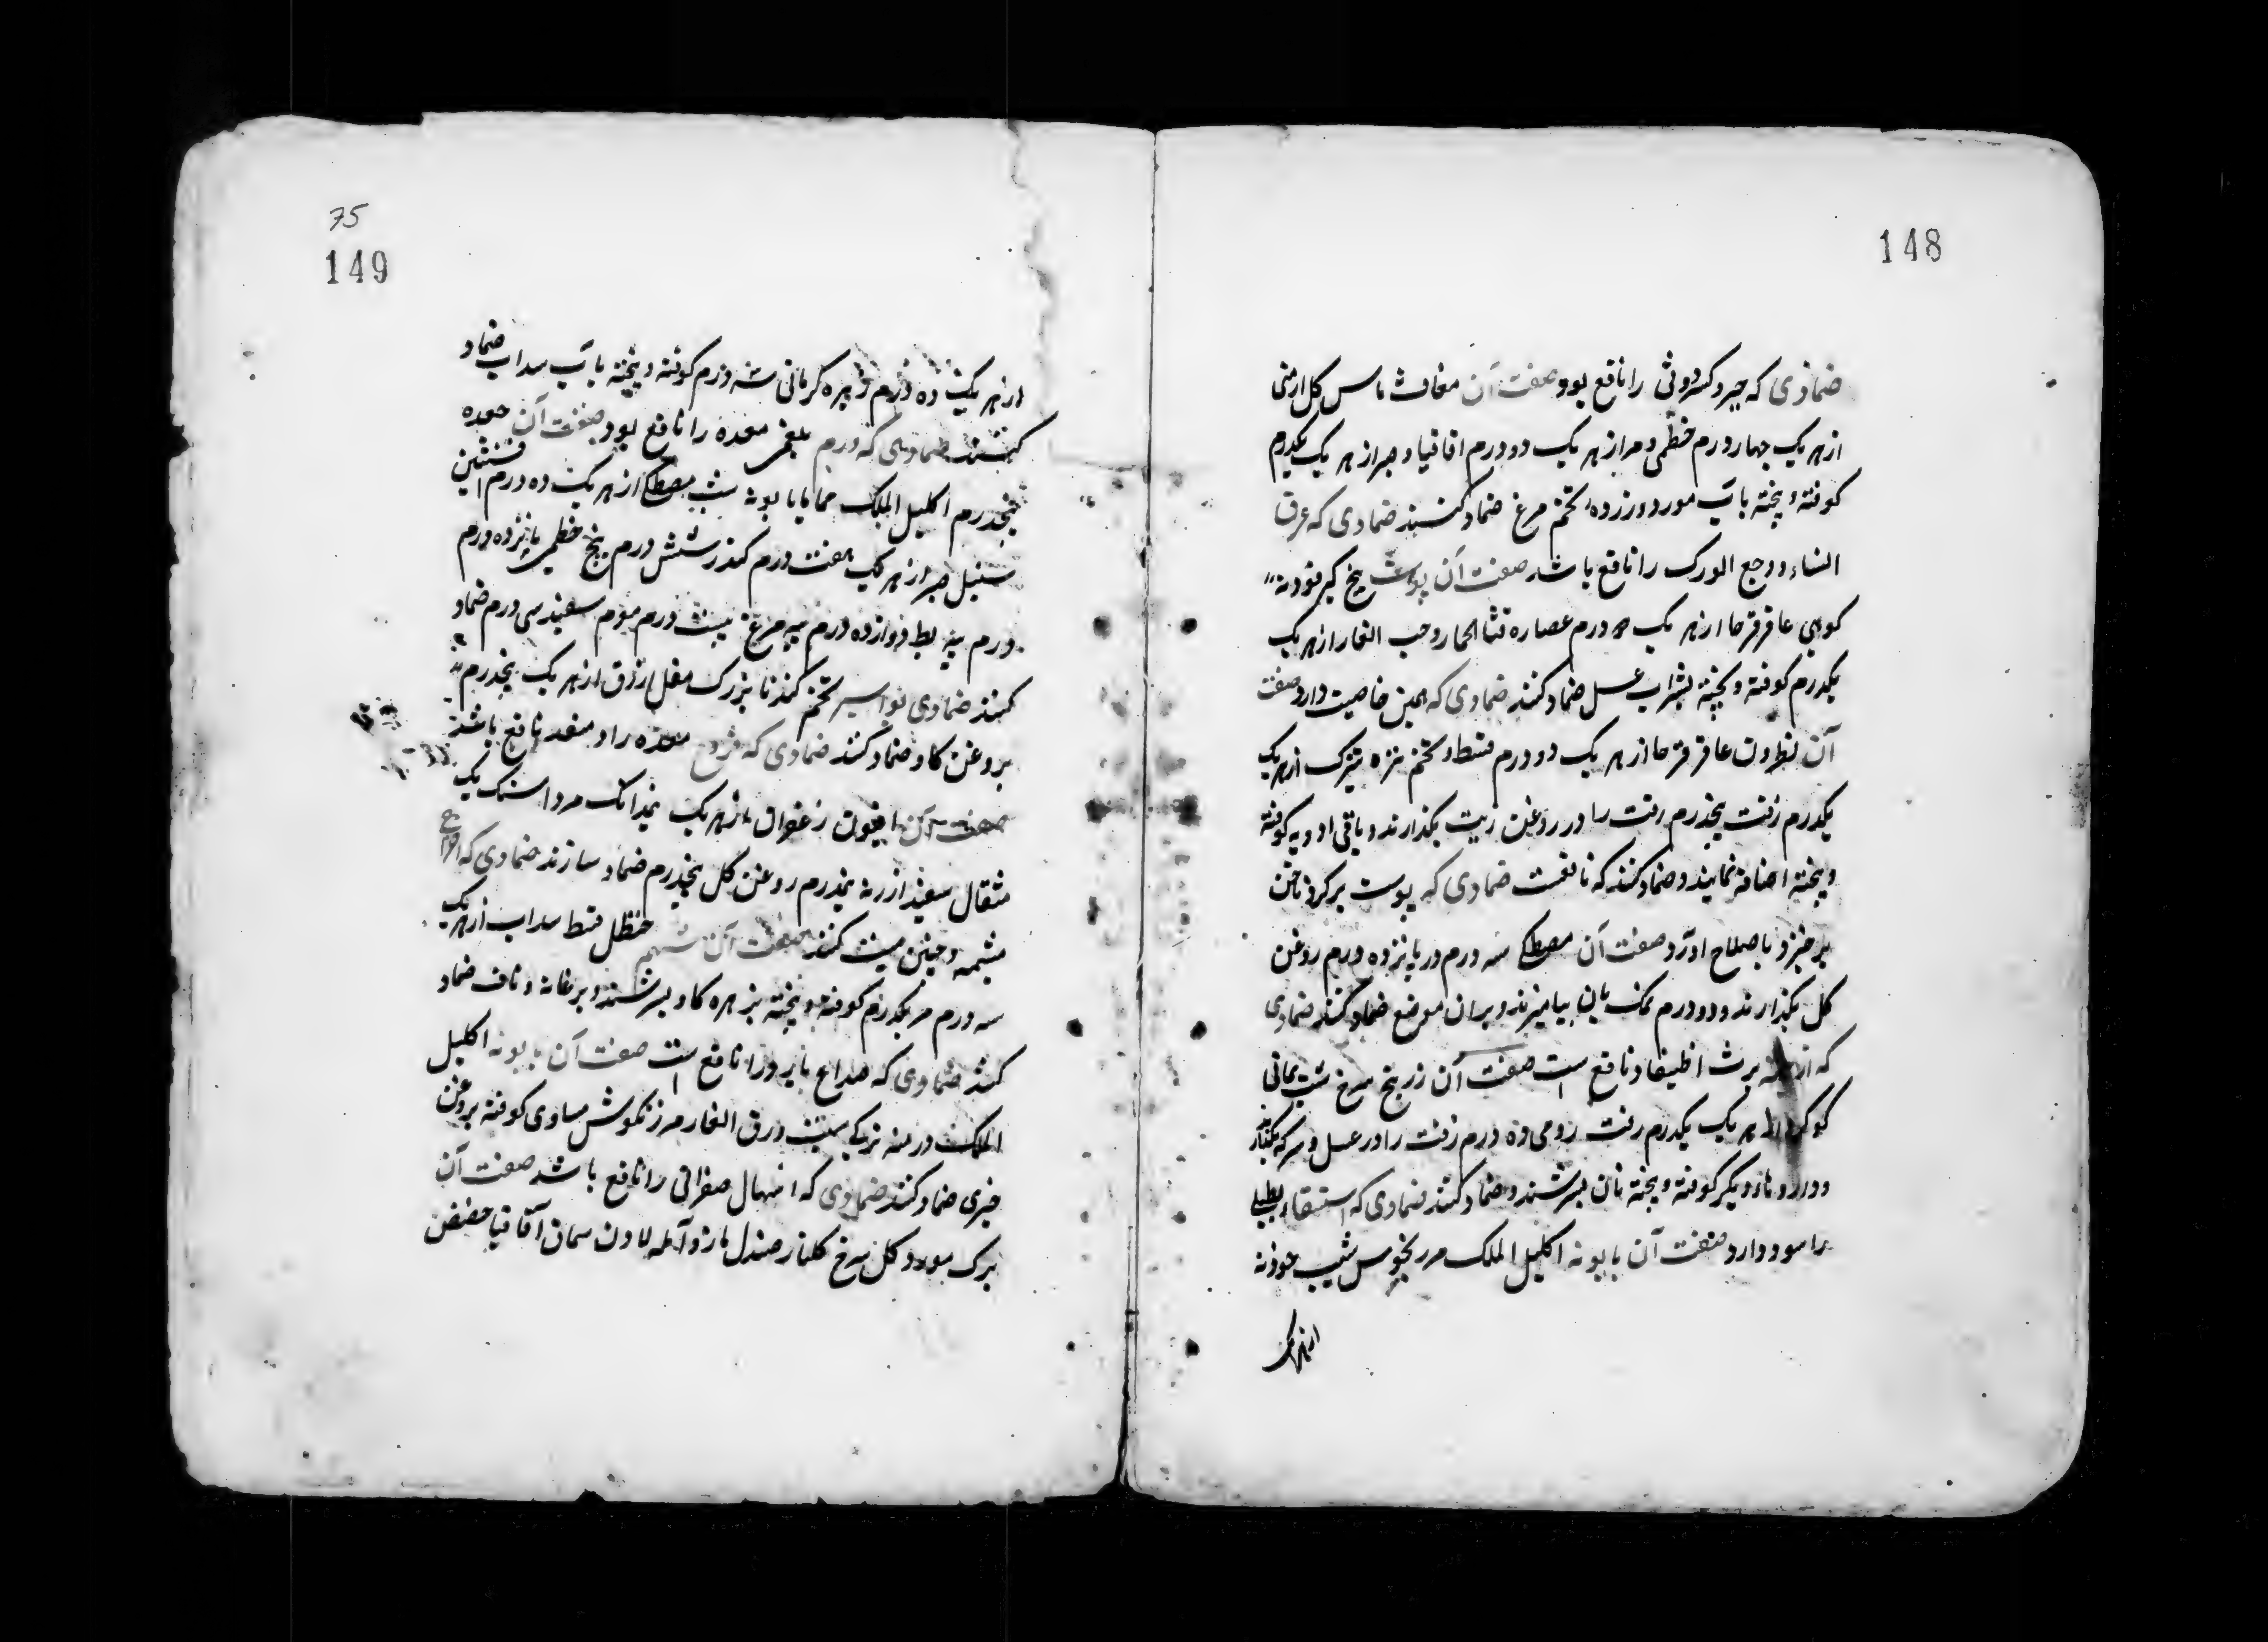 148
ضمادی که جبر و کسر وثی را نافع بود صفت آن مغاث ماس کل ارمنی
از هر یک چهار درم خطمی و مر از هر یک دو درم اقاقیا و صبر از هر یک یکدرم
کوفته و پخته بآب مورد و زرده تخم مرغ ضماد کنند ضمادی که عرق
النساء و وجع الورک را نافع باشد صفت آن پوست بیخ کبر فودنه
کوهی عاقرقرحا از هر یک درم عصاره قثا الحمار و حب الغار از هر یک
یکدرم کوفته و پخته بشراب عسل ضماد کنند ضمادی که همین خاصیت دارد صفت
آن نطرون عاقرقرحا از هر یک دو درم قسط و تخم تره تیزک از هر یک
یکدرم زفت پنجدرم زفت را در روغن زیت بکدارند و باقی ادویه کوفته
و پخته اضافه نمایند و ضماد کنند که نافعست ضمادی که پوست بر کرد ناخن
بر خیزد باصلاح اورد صفت آن مصطکی سه درم در پانزده درم روغن
کل بکدارند و دو درم نمک بان بیامیزند و بران موضع ضماد کنند ضمادی
که از برث اظیفاد نافع است صفت آن زرنیخ سرخ شب یمانی
هر یک یکدرم زفت رومی ده درم زفت را در عسل و سرکه بکدارند
و داروهاء دیکر کوفته و پخته بان بسرشند و ضماد کنند ضمادی که استسقاء
را سود دارد صفت آن بابونه اکلیل الملک شیب
از هر یک
75
149
از هر یک ده درم زیره کرمانی سه درم کوفته و پخته بآب سداب ضماد
کنند ضمادی که ورم بلغمی معده را نافع بود صفت آن جعده
پنجدرم اکلیل الملک حماما بابونه شب مصطکی از هر یک ده درم افسنتین
سنبل صبر از هر یک هفت درم کندر شش درم بیخ خطمی پانزده درم
درم پیه بط دوازده درم پیه مرغ بیست درم موم سفید سی درم ضماد
کنند ضمادی بواسیر تخم کندنا بزرک مقل ازرق از هر یک پنجدرم
بروغن کاو ضماد کنند ضمادی که قروح معده را و مقعد نافع باشد
صفت آن افیون زعفران از هر یک نیمدانک مرداسنک یک
مثقال سفید ارزیه نیمدرم روغن کل پنجدرم ضماد سازند ضمادی که اخراج
مشیمه و جنین میت کند صفت آن شحم حنظل قسط سداب از هر یک
سه درم مر یکدرم کوفته و پخته بزهره کاو بسرشند و بر عانه و ناف ضماد
کنند ضمادی که صداع بارد را نافع است صفت آن بابونه اکلیل
الملک درمنه ترکی شبت ورق الغار مرزنکوش مساوی کوفته بروغن
خیری ضماد کنند ضمادی که اسهال صفرائی را نافع باشد صفت آن
برک مورد و کل سرخ کلنار صندل مازو آمله لادن سماق اقاقیا حضض